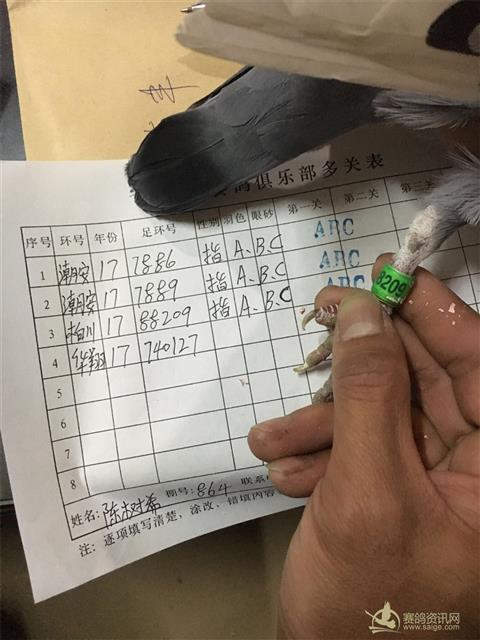 鸽俱乐部多关表
序号 环号 年份 足环号 性别 羽色 眼砂 第一关 第二关 第三关
1 潮安 17 7886 指 A、B、C ABC
2 潮安 17 7889 指 A、B、C ABC
3 柏川 17 88209 指 A、B、C ABC
4 华翔 17 740127
5
6
7
8
姓名: 棚号: 864 联系
注: 逐项填写清楚, 涂改、错填内容
8209
赛鸽资讯网
www.saige.com